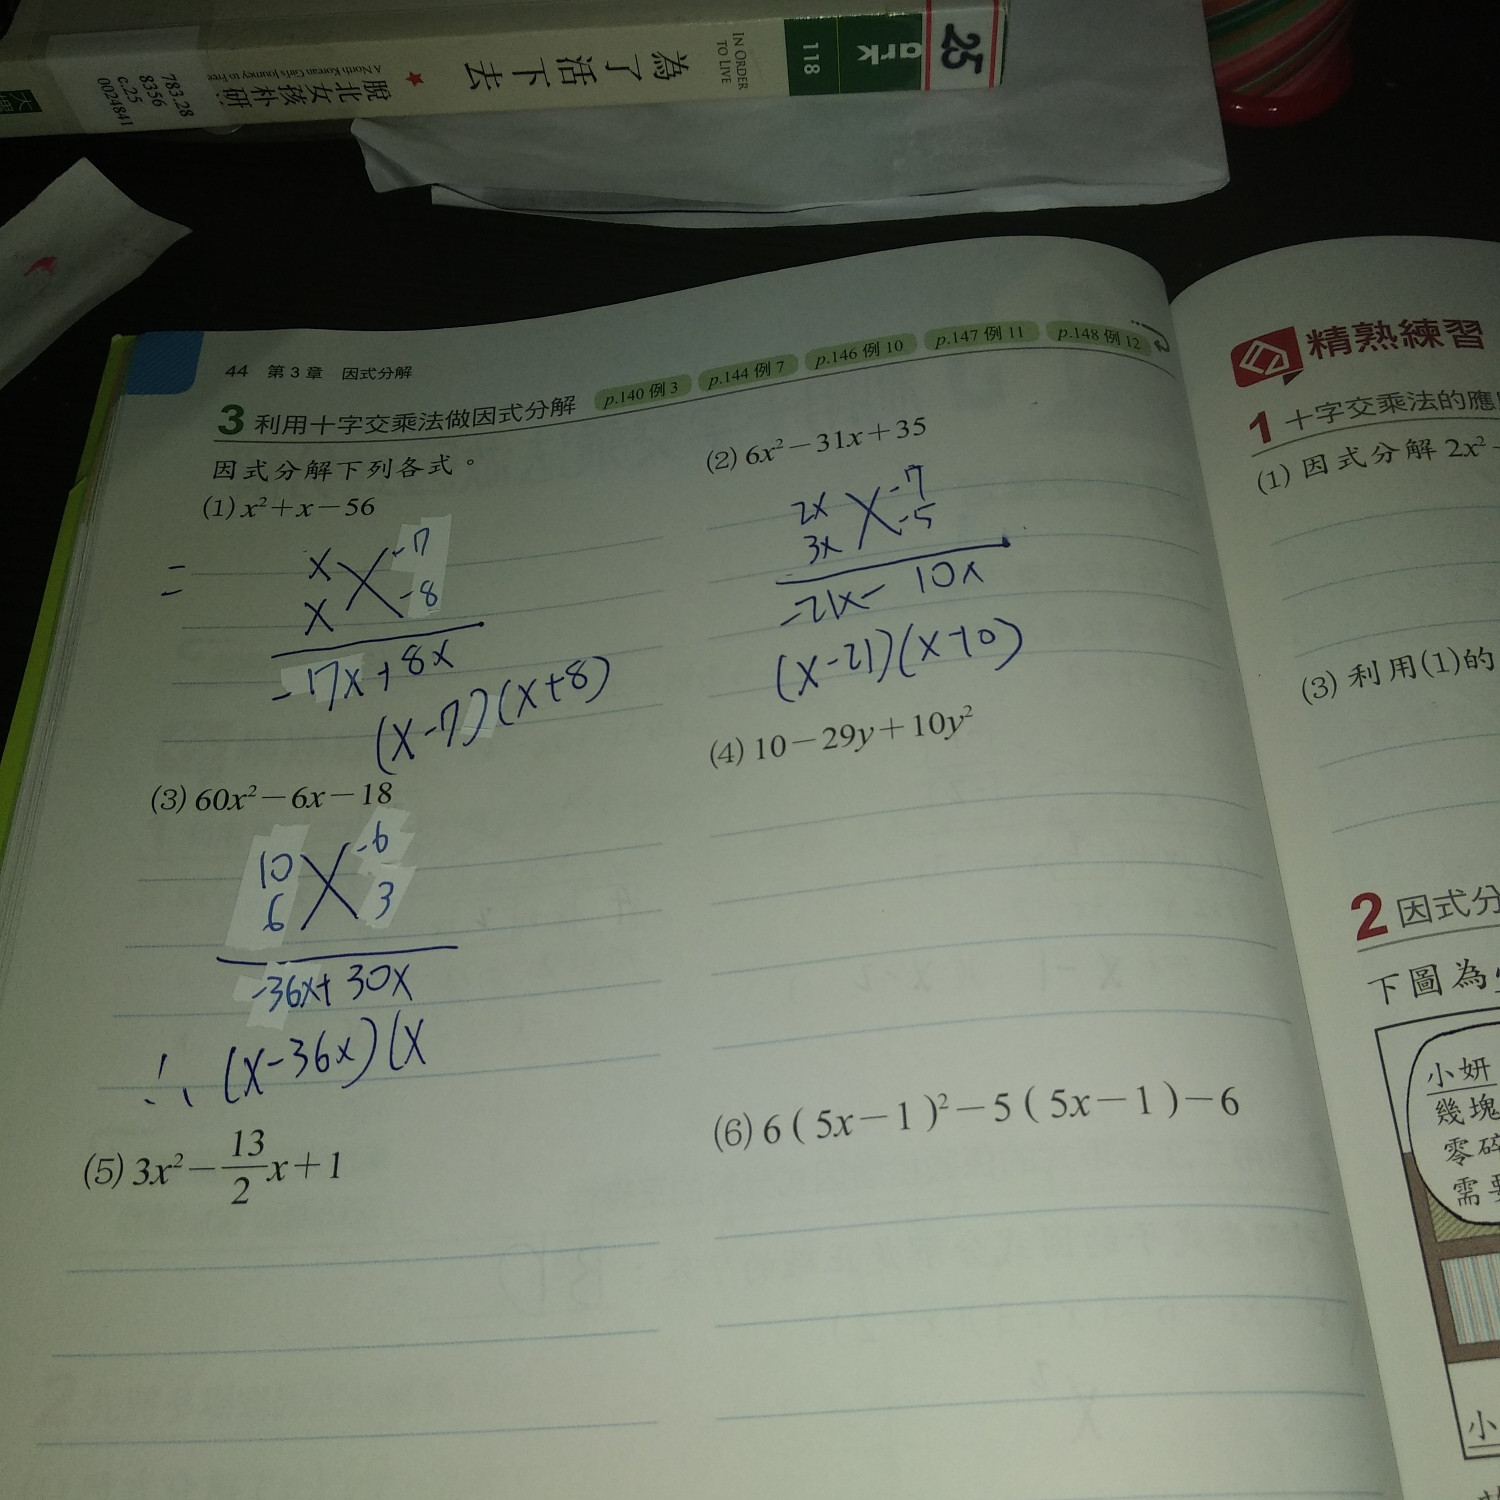 25
ark
118
IN ORDER
TO LIVE
為了活下去
脫北女孩朴研
A North Korean Girl's Journey to Free
783.28
8356
c.25
0024841
44 第3章 因式分解
3 利用十字交乘法做因式分解
p.140 例 3
p.144 例 7
p.146 例 10
p.147 例 11
p.148 例 12
因式分解下列各式。
(1) x²+x−56
= x -7
x -8
-17x+8x
(x-7)(x+8)
(2) 6x²−31x+35
2x -7
3x -5
-21x- 10x
(x-21)(x-10)
(3) 60x²−6x−18
10 -6
6 3
-36x+30x
∴ (x-36x)(x
(4) 10−29y+10y²
(5) 3x²−13/2x+1
(6) 6(5x−1)²−5(5x−1)−6
精熟練習
1 十字交乘法的應
(1) 因式分解 2x²
(3) 利用(1)的
2 因式分
下圖為
小妍
幾塊
零碎
需要
小